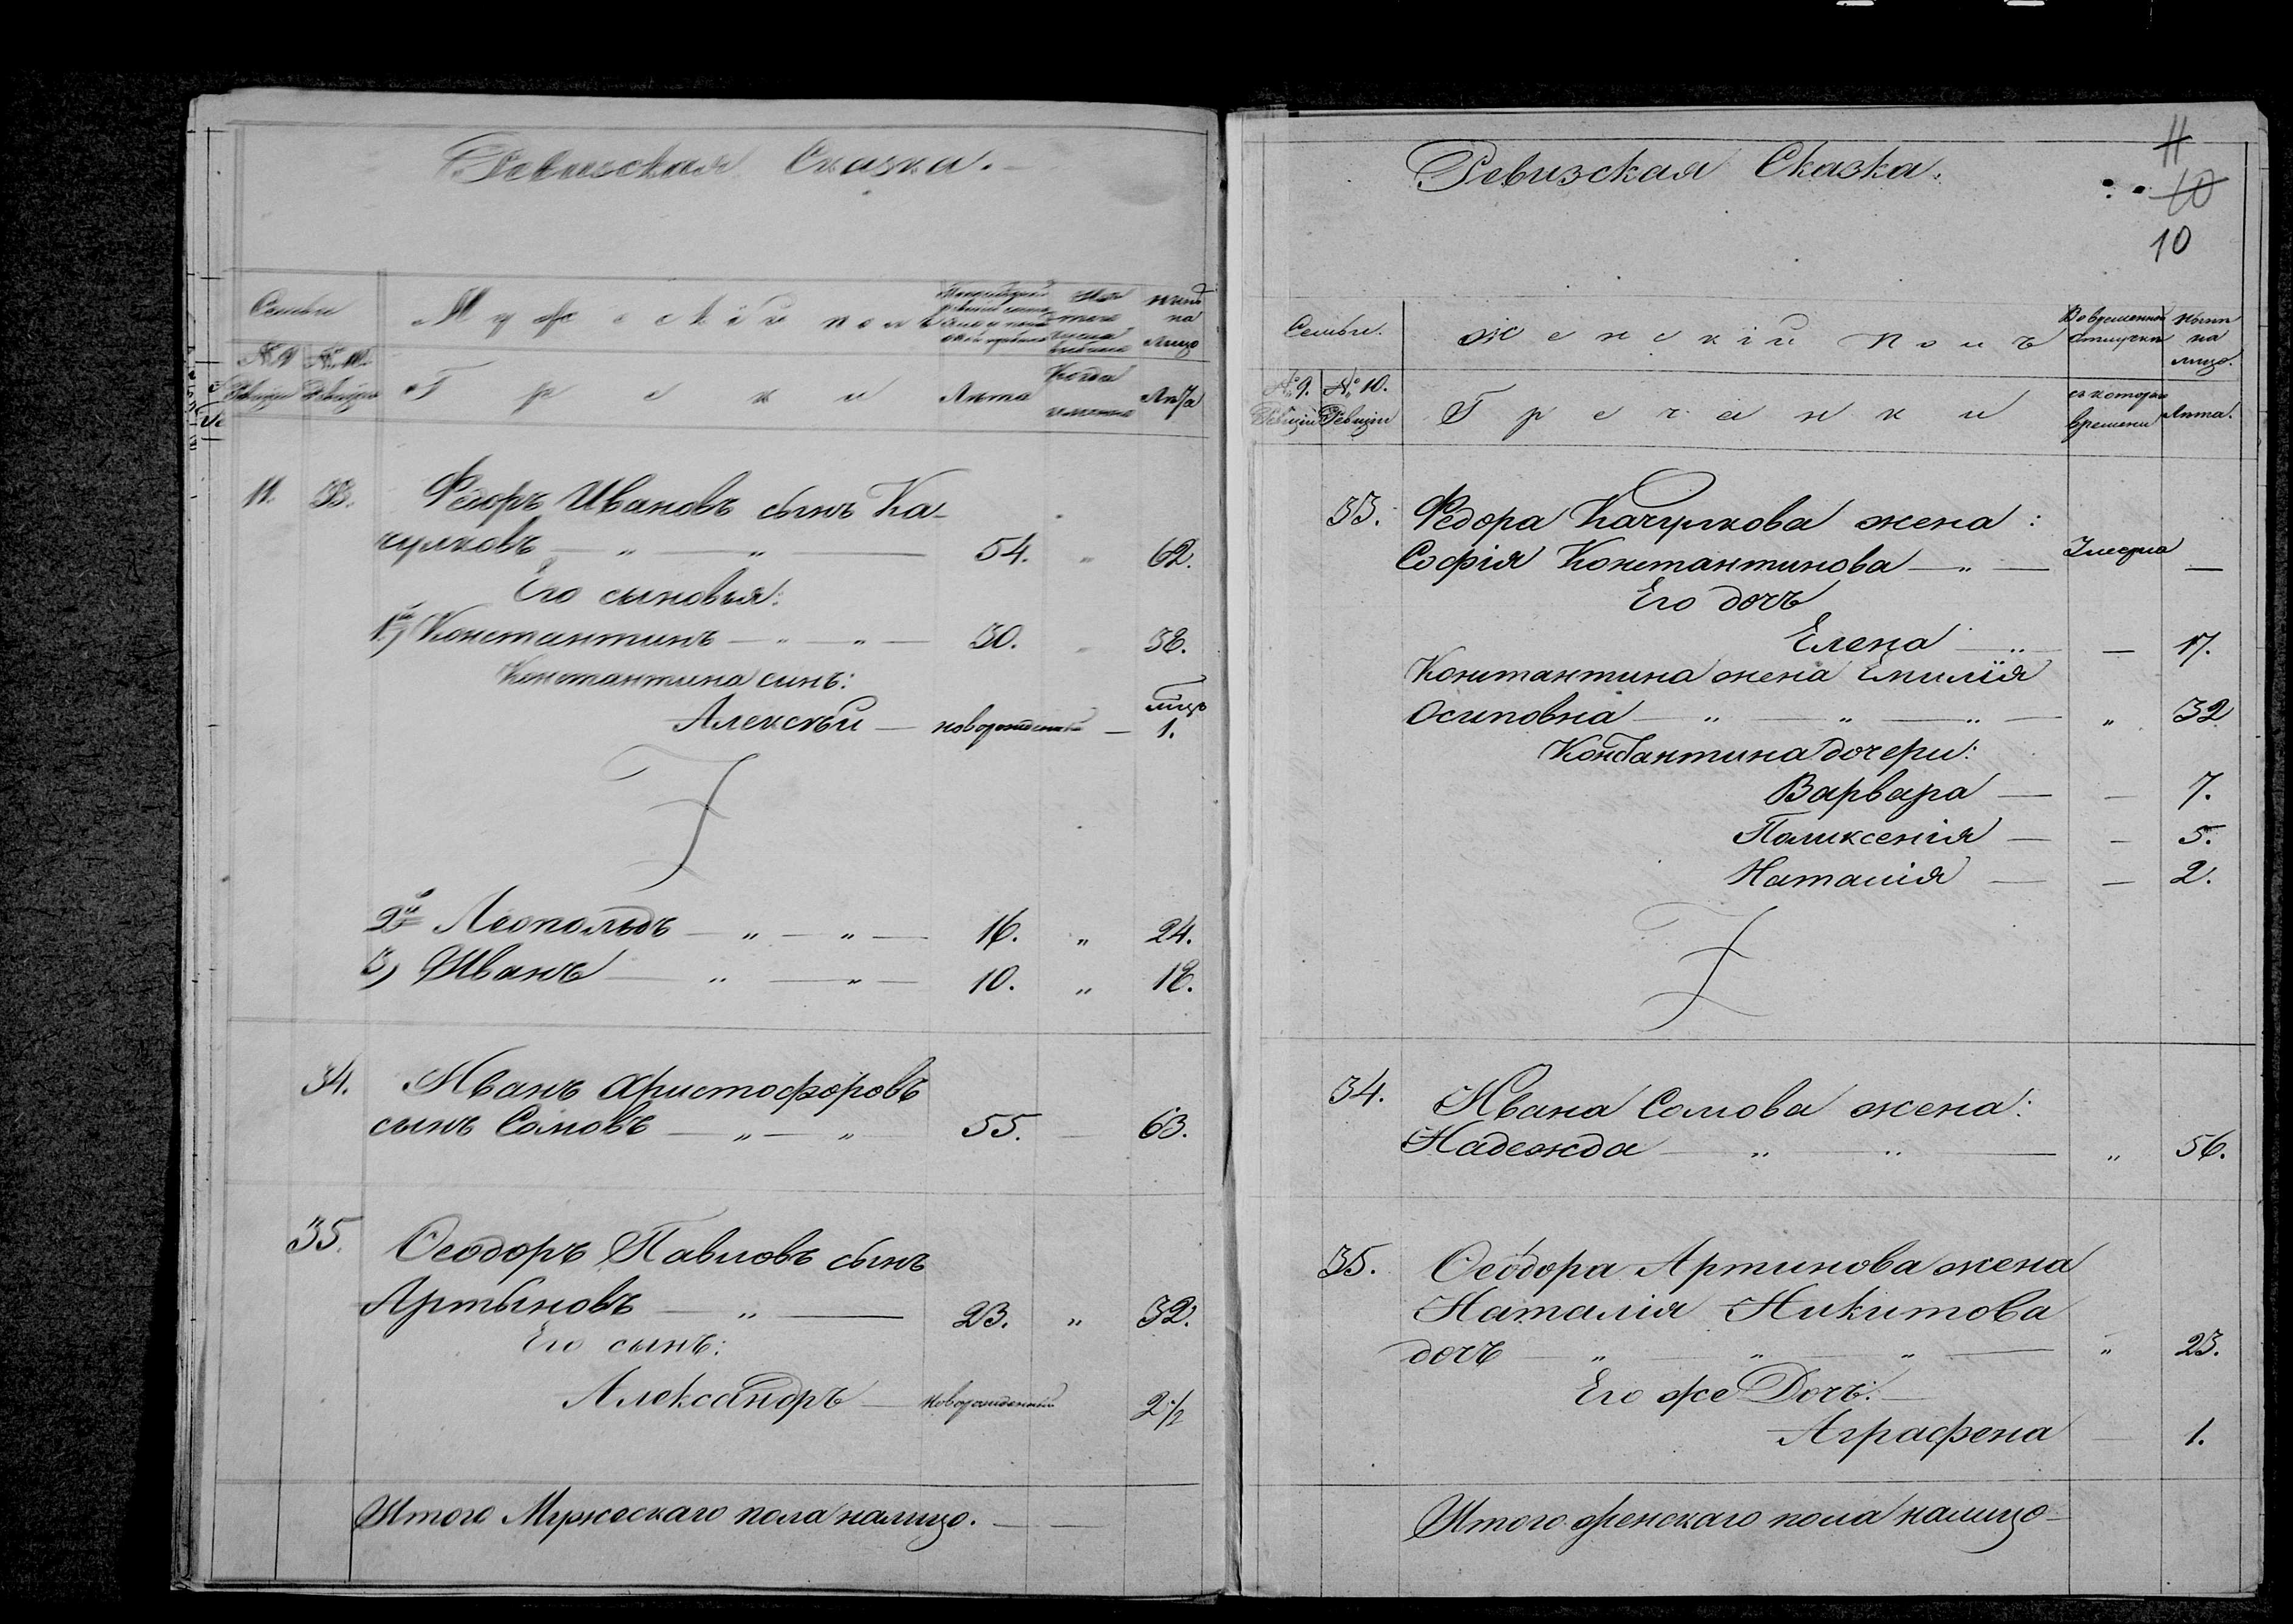 Ревизская Сказка.
Семьи
Мужескій полъ
на
лицо
№ 9 № 10.
Ревизіи Ревизіи
Греки
Лѣта
Когда
именно
Лѣта
11. 33. Федоръ Ивановъ сынъ Ка-
чулковъ — „ — „ — 54. „ 62.
Его сыновья:
1й) Константинъ — „ — „ — 30. „ 38.
Константина сынъ:
лицо
Алексѣй — новорожденный — 1.
2й Леопольдъ — „ — „ — 16. „ 24.
3) Иванъ — „ — „ — 10. „ 18.
34. Иванъ Христофоровъ
сынъ Сомовъ — „ — „ 55. — 63.
35. Ѳеодоръ Павловъ сынъ
Артыновъ — „ — 23. „ 32.
Его сынъ:
Александръ — новорожденный 2 1/2
Итого Мужескаго пола налицо. — —
11
Ревизская Сказка.
10
10
Семьи.
Женскій полъ
Во временной
отлучкѣ
нынѣ
на
лицо.
№ 9. № 10.
Ревизіи Ревизіи
Гречанки
съ котораго
времени
Лѣта.
33. Федора Качулкова жена:
Софія Константинова — „ — Умерла —
Его дочь
Елена — „ — 17.
Константина жена Емилія
Осиповна — „ — „ — „ — „ 32
Константина дочери:
Варвара — — 7.
Поликсенія — — 5.
Наталія — — 2.
34. Ивана Сомова жена:
Надежда — „ — „ — „ 56.
35. Ѳеодора Артинова жена
Наталія Никитова
дочь — „ — „ — „ — „ 23.
Его же Дочь: —
Аграфена — 1.
Итого женскаго пола налицо —